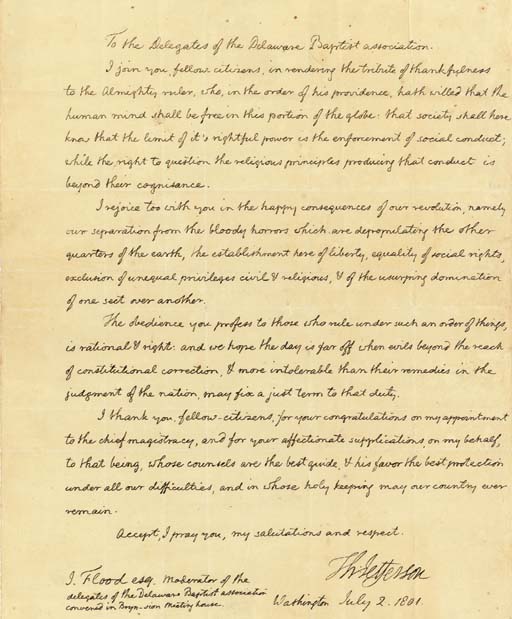 To the Delegates of the Delaware Baptist association.
I join you, fellow-citizens, in rendering the tribute of thankfulness
to the Almighty ruler, who, in the order of his providence, hath willed that the
human mind shall be free in this portion of the globe: that society shall here
know that the limit of it's rightful power is the enforcement of social conduct;
while the right to question the religious principles producing that conduct is
beyond their cognisance.
I rejoice too with you in the happy consequences of our revolution, namely
our separation from the bloody horrors which are depopulating the other
quarters of the earth, the establishment here of liberty, equality of social rights,
exclusion of unequal privileges civil & religious, & of the usurping domination
of one sect over another.
The obedience you profess to those who rule under such an order of things,
is rational & right: and we hope the day is far off when evils beyond the reach
of constitutional correction, & more intolerable than their remedies in the
judgment of the nation, may fix a just term to that duty.
I thank you, fellow-citizens, for your congratulations on my appointment
to the chief magistracy, and for your affectionate supplications, on my behalf,
to that being, whose counsels are the best guide, & his favor the best protection
under all our difficulties, and in whose holy keeping may our country ever
remain.
Accept, I pray you, my salutations and respect.
Th: Jefferson
J. Flood esq. Moderator of the
delegates of the Delaware Baptist association
convened in Bryn-sion Meeting house.
Washington July 2. 1801.